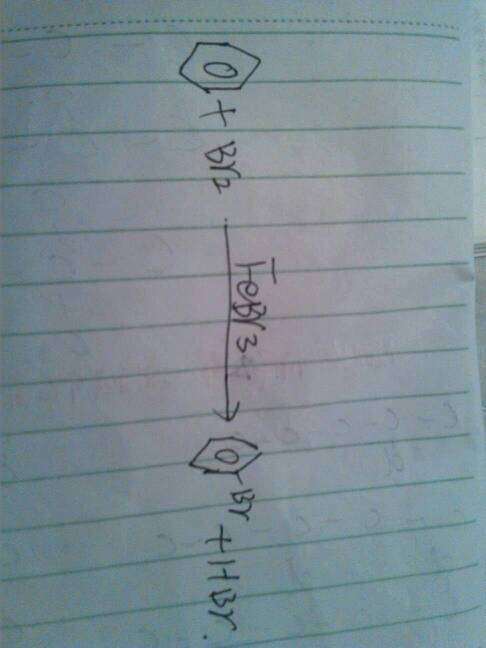 + Br2 FeBr3 Br + HBr.